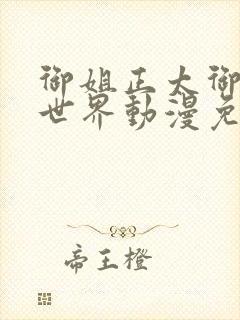 御姐正大御
世界動漫免
帝王橙